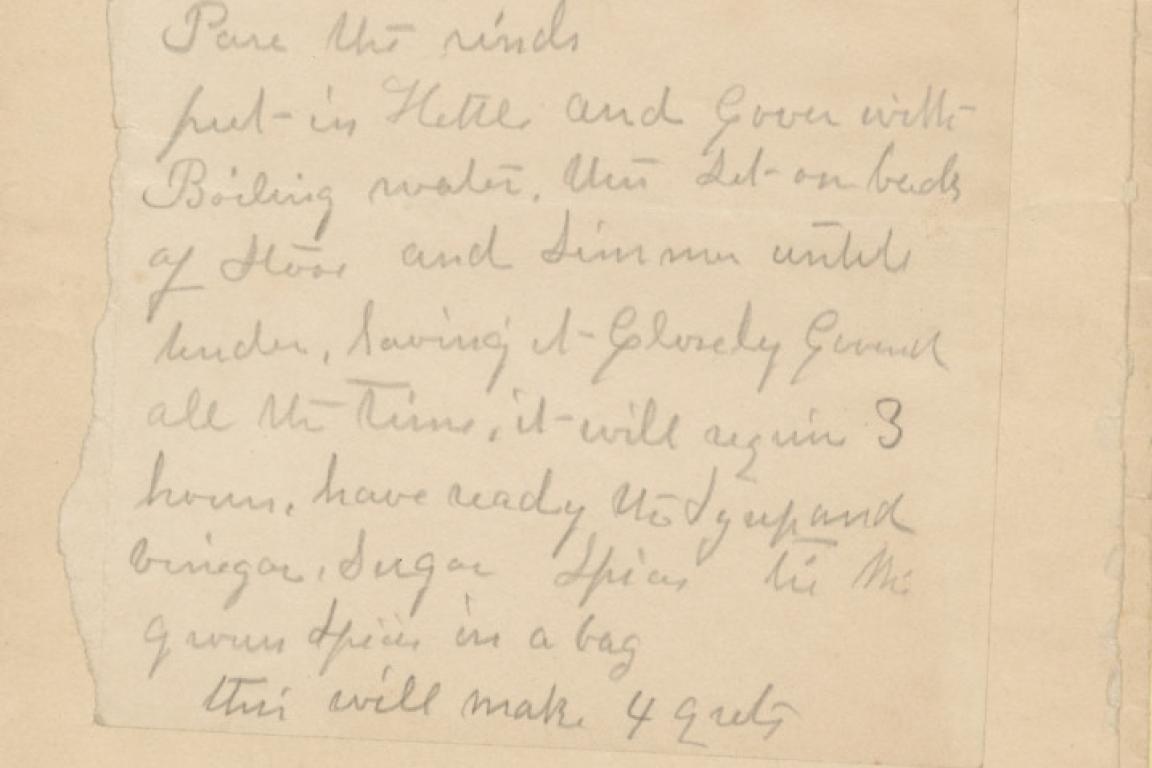 Pare the rinds
put in Kettle and Cover with
Boiling water. then Set on back
of Stove and Simmer until
tender, having it Closely Covered
all the Time, it will require 3
hours. have ready the Syrup and
vinegar, Sugar Spices tie the
groun Spices in a bag
this will make 4 qrets